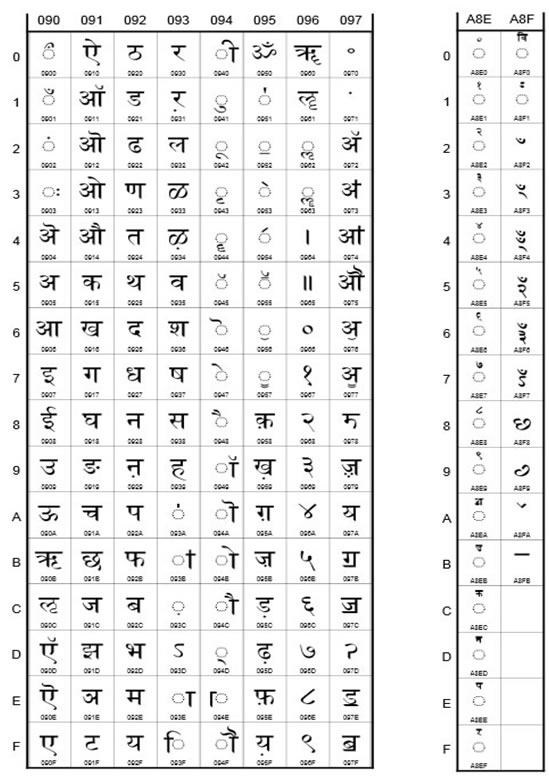 090 091 092 093 094 095 096 097 A8E A8F
0 ऀ ऐ ठ र ी ॐ ॠ ॰ 0 ꣠ ꣰
0900 0910 0920 0930 0940 0950 0960 0970 A8E0 A8F0
1 ँ ऑ ड ऱ ु ॑ ॡ ॱ 1 ꣡ ꣱
0901 0911 0921 0931 0941 0951 0961 0971 A8E1 A8F1
2 ं ऒ ढ ल ू ॒ ॢ ॲ 2 ꣢ ꣲ
0902 0912 0922 0932 0942 0952 0962 0972 A8E2 A8F2
3 ः ओ ण ळ ृ ॓ ॣ ॳ 3 ꣣ ꣳ
0903 0913 0923 0933 0943 0953 0963 0973 A8E3 A8F3
4 ऄ औ त ऴ ॄ ॔ । ॴ 4 ꣤ ꣴ
0904 0914 0924 0934 0944 0954 0964 0974 A8E4 A8F4
5 अ क थ व ॅ ॕ ॥ ॵ 5 ꣥ ꣵ
0905 0915 0925 0935 0945 0955 0965 0975 A8E5 A8F5
6 आ ख द श ॆ ॖ ० ॶ 6 ꣦ ꣶ
0906 0916 0926 0936 0946 0956 0966 0976 A8E6 A8F6
7 इ ग ध ष े ॗ १ ॷ 7 ꣧ ꣷ
0907 0917 0927 0937 0947 0957 0967 0977 A8E7 A8F7
8 ई घ न स ै क़ २ ॸ 8 ꣨ ꣸
0908 0918 0928 0938 0948 0958 0968 0978 A8E8 A8F8
9 उ ङ ऩ ह ॉ ख़ ३ ॹ 9 ꣩ ꣹
0909 0919 0929 0939 0949 0959 0969 0979 A8E9 A8F9
A ऊ च प ऺ ॊ ग़ ४ ॺ A ꣪ ꣺
090A 091A 092A 093A 094A 095A 096A 097A A8EA A8FA
B ऋ छ फ ऻ ो ज़ ५ ॻ B ꣫ ꣻ
090B 091B 092B 093B 094B 095B 096B 097B A8EB A8FB
C ऌ ज ब ़ ौ ड़ ६ ॼ C ꣬
090C 091C 092C 093C 094C 095C 096C 097C A8EC
D ऍ झ भ ऽ ् ढ़ ७ ॽ D ꣭
090D 091D 092D 093D 094D 095D 096D 097D A8ED
E ऎ ञ म ा ॎ फ़ ८ ॾ E ꣮
090E 091E 092E 093E 094E 095E 096E 097E A8EE
F ए ट य ि ॏ य़ ९ ॿ F ꣯
090F 091F 092F 093F 094F 095F 096F 097F A8EF